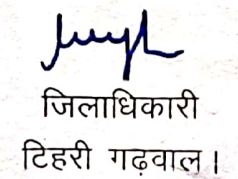 जिलाधिकारी
टिहरी गढ़वाल।